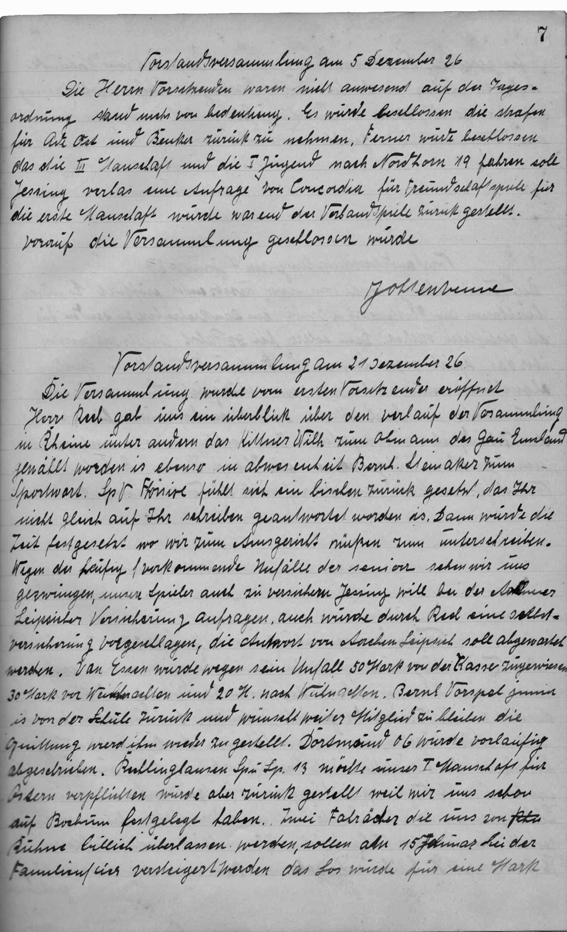 7
Vorstandsversammlung am 5 Dezember 26
Die Herrn Vorsitzenden waren nicht anwesend auf der Tages-
ordnung stand nichts von bedeutung. Es würde beschlossen die strafen
für Ost und Benker zurück zu nehmen, Ferner würde beschlossen
das die III Manschaft und die I Jügend nach Nordhorn 19 fahren soll
Jessing verlas eine Anfrage von Concordia für Freundschaftspiele für
die erste Manschaft würde warend der Verbandspiele zürück gestellt.
worauf die Versammlung geschlossen würde
Vorstandsversammlung am 21 Dezember 26
Die Versammlung wurde vom ersten Vorsitzender eröffnet
Herr gab uns ein überblick über den verlauf der Versammlung
in Rheine ünter andern das Wilh zum obmann des Gau Emsland
gewällt worden is ebenso in abwesenheit Bernh. zum
Sportwart. Sp V fühlt sich ein bischen zürück gesetzt, das Ihr
nicht gleich auf Ihr schreiben geantwortet worden is. Dann würde die
Zeit festgesetzt wo wir zum Amsgericht müssen zum unterschreiben.
Wegen der häüfig vorkommende Unfälle der senior sehen wir uns
gezwüngen, unser Spieler auch zu versichern Jessing will bei der
Leipsicher Versicherung anfragen, auch würde durch eine selbst-
versicherung vorgeschlagen, die Antwort von Aachen Leipsich soll abgewartet
werden. Van Essen würde wegen sein Unfall 50 Mark von der Kasse zugewiesen
30 Mark vor Weihnachten und 20 M. nach Weihnachten. Bernh Vorspel junior
is von der Schule zürück und wünscht weiter Mitglied zu bleiben die
Quittung werd ihm wieder zugestellt. Dortmund 06 würde vorlaüfig
abgeschrieben. Rüllinghausen Sp. 13 möchte unser I Manschaft für
Ostern verpflichten würde aber zürück gestellt weil mir uns schon
auf Bochum festgelegt haben. Zwei Fahräder die uns von
Bühne billich überlassen werden, sollen am 15 Februar bei der
Familienfeier versteigert werden das Los würde für eine Mark